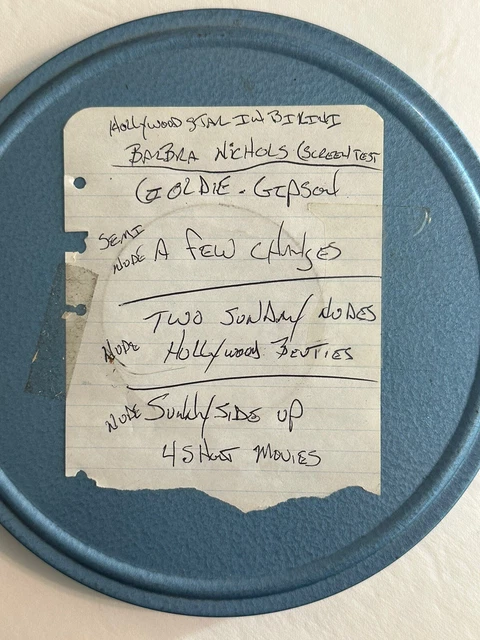 HOLLYWOOD STAR IN BIKINI
BARBRA NICHOLS (SCREEN TEST
GOLDIE. GIPSON
SEMI
NUDE A FEW CHANGES
TWO SUNDAY NUDES
NUDE HOLLYWOOD BEUTIES
NUDE SUNNY SIDE UP
4 SHORT MOVIES